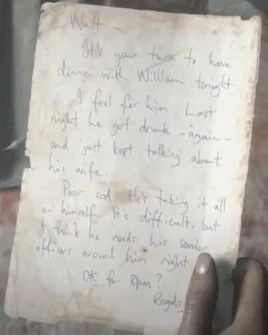 Walt –
It's your turn to have
dinner with William tonight.
I feel for him. Last
night he got drunk – again –
and just kept talking about
his wife.
Poor sod. He's taking it all
on himself. It's difficult, but
I think he needs his senior
officers around him right
OK for 8pm?
Regards